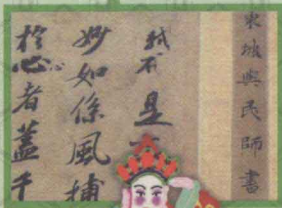 東坡與民師書
不是
妙如係風捕
於心者蓋千